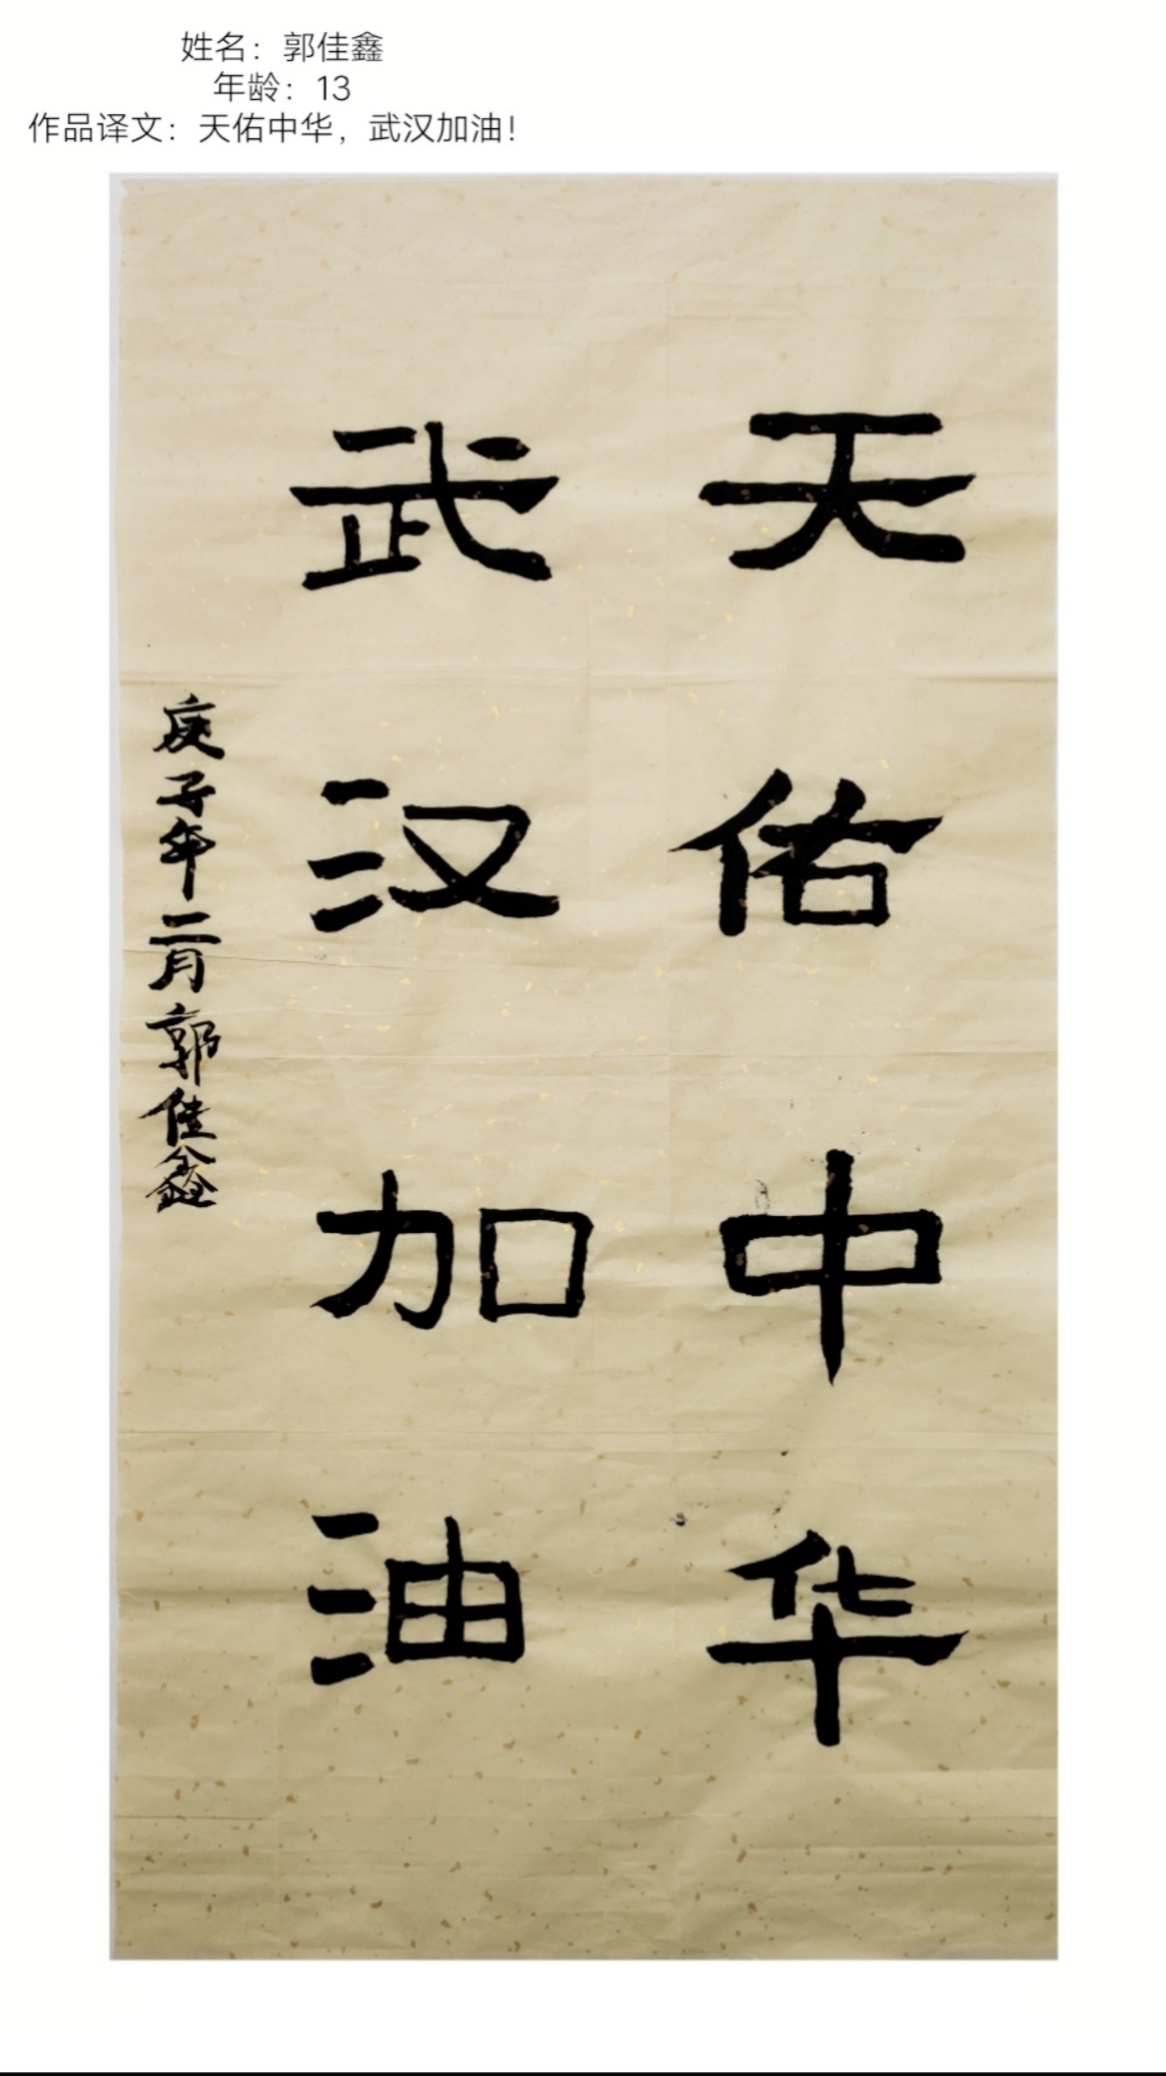 姓名：郭佳鑫
年龄：13
作品译文：天佑中华，武汉加油！
天佑中华
武汉加油
庚子年二月郭佳鑫